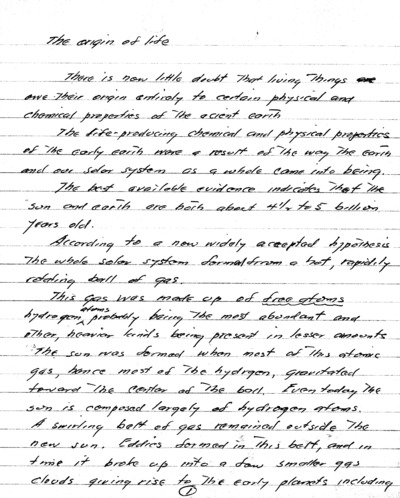 The origin of life
There is now little doubt that living things
owe their origin entirely to certain physical and
chemical properties of the acient earth
The life-producing chemical and physical properties
of the early earth were a result of the way the earth
and our solar system as a whole came into being.
The best available evidence indicates that the
sun and earth are both about 4½ to 5 billion
years old.
According to a now widely accepted hypothesis
the whole solar system formed from a hot, rapidily
rotating ball of gas.
This gas was made up of free atoms
hydrogen atoms probably being the most abundant and
other, heavier kinds being present in lesser amounts
The sun was formed when most of this atomic
gas, hence most of the hydrgen, gravitated
toward the center of the ball. Even today the
sun is composed largely of hydrogen atoms.
A swirling belt of gas remained outside the
new sun. Eddies formed in this belt, and in
time it broke up into a few smaller gas
clouds giving rise to the early planets including
1